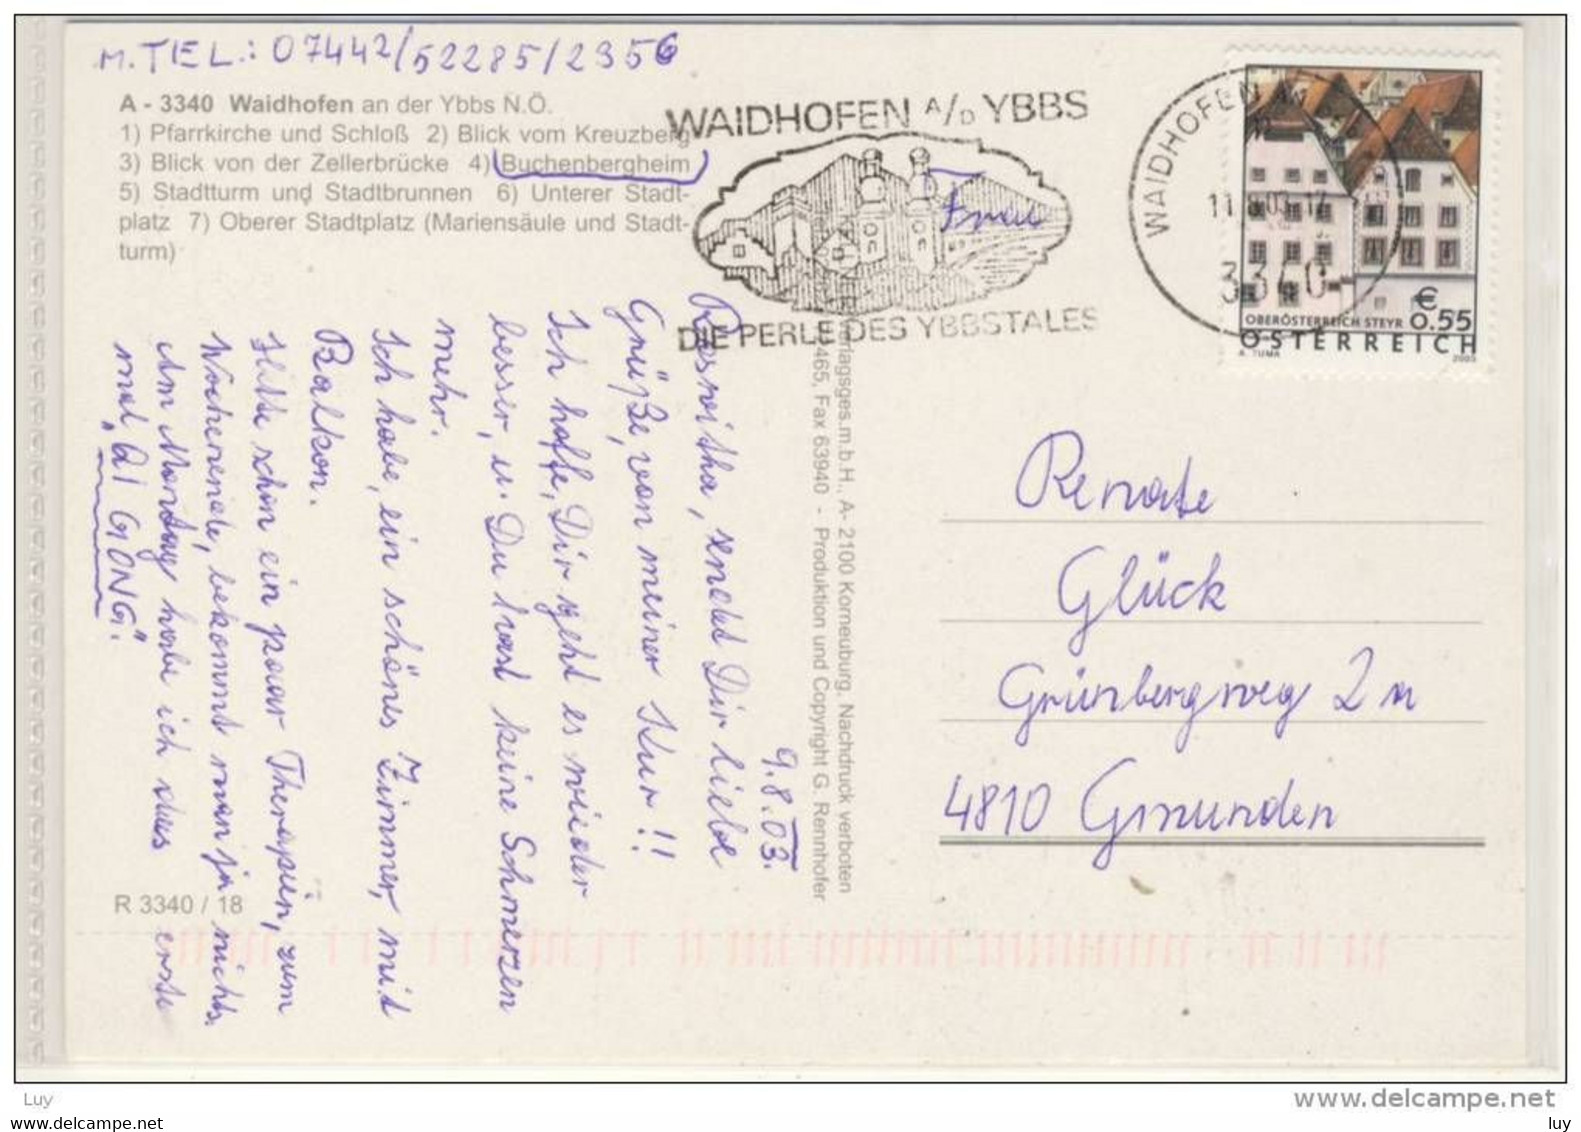 M. TEL.: 07442/52285/2356
A - 3340 Waidhofen an der Ybbs N.Ö.
1) Pfarrkirche und Schloß 2) Blick vom Kreuzberg
3) Blick von der Zellerbrücke 4) Buchenbergheim
5) Stadtturm und Stadtbrunnen 6) Unterer Stadt-
platz 7) Oberer Stadtplatz (Mariensäule und Stadt-
turm)
WAIDHOFEN A/D YBBS
DIE PERLE DES YBBSTALES
WAIDHOFEN
3340
€
0.55
OBERÖSTERREICH STEYR
ÖSTERREICH
A. TUMA
2003
9.8.03.
Roswitha, sendet Dir liebe
Grüße, von meiner Kur!!
Ich hoffe, Dir geht es wieder
besser, u. Du hast keine Schmerzen
mehr.
Ich habe, ein schönes Zimmer, mit
Balkon.
Hatte schon ein paar Therapien, zum
Wochenende, bekommt man ja nichts.
Am Montag habe ich das erste
mal "QI GONG".
Verlagsges.m.b.H., A- 2100 Korneuburg. Nachdruck verboten
465, Fax 63940 - Produktion und Copyright G. Rennhofer
Frau
Renate
Glück
Grünbergweg 2a
4810 Gmunden
R 3340 / 18
Luy
www.delcampe.net
Luy
www.delcampe.net
luy